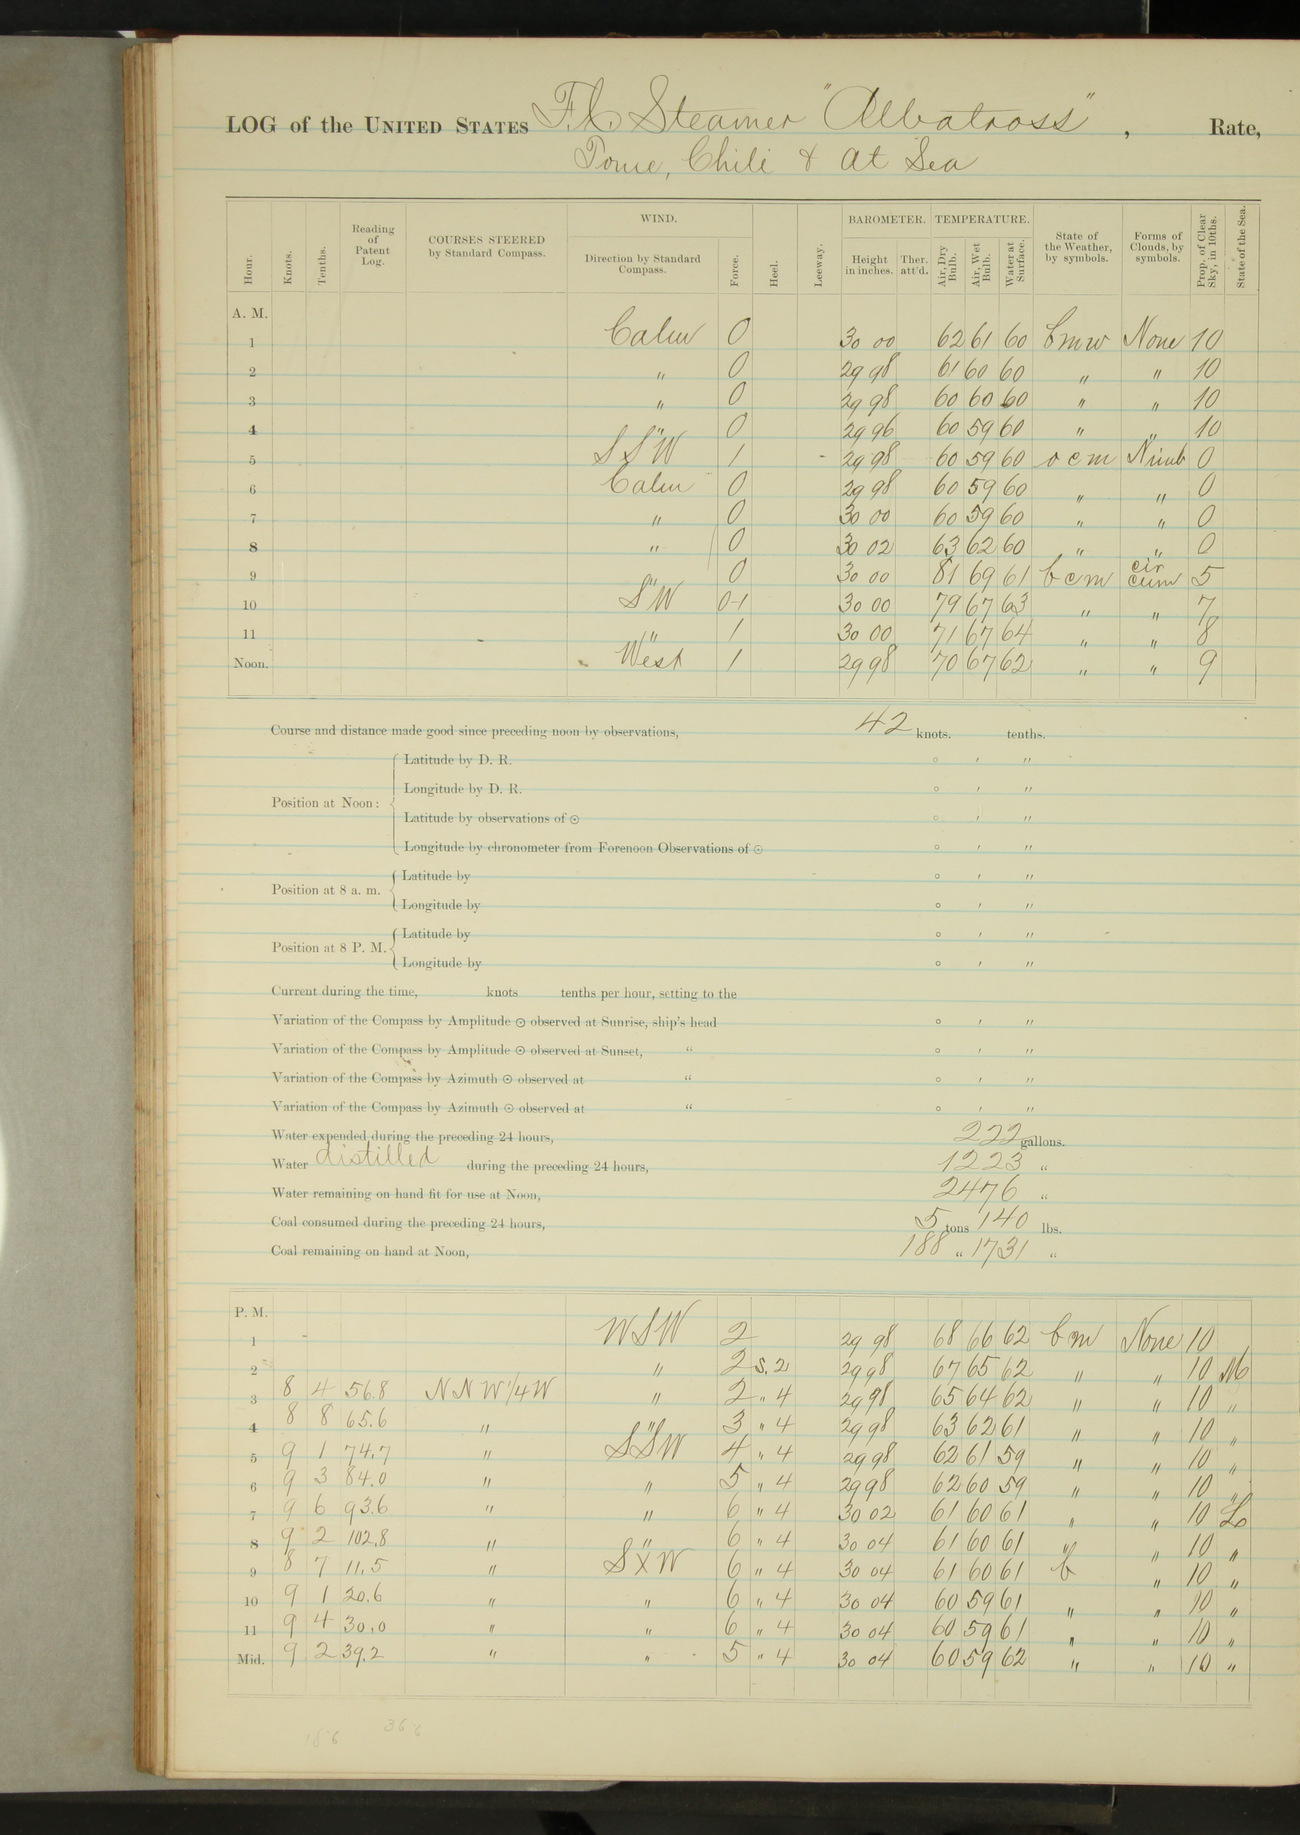 LOG of the UNITED STATES F.C. Steamer "Albatross", Rate,
Tome, Chili & at Sea
Hour. Knots. Tenths. Reading of Patent Log. COURSES STEERED by Standard Compass. WIND. Direction by Standard Compass. Force. Heel. Leeway. BAROMETER. Height in inches. Ther. att'd. TEMPERATURE. Air, Dry Bulb. Air, Wet Bulb. Water at Surface. State of the Weather, by symbols. Forms of Clouds, by symbols. Prop. of Clear Sky, in 10ths. State of the Sea.
A. M.
1 Calm 0 30 00 62 61 60 bmw None 10
2 " 0 29 98 61 60 60 " " 10
3 " 0 29 98 60 60 60 " " 10
4 " 0 29 96 60 59 60 " " 10
5 SSW 1 29 98 60 59 60 o c m Nimb 0
6 Calm 0 29 98 60 59 60 " " 0
7 " 0 30 00 60 59 60 " " 0
8 " 0 30 02 63 62 60 " " 0
9 " 0 30 00 81 69 61 b c m cir cum 5
10 SW 0-1 30 00 79 67 63 " " 7
11 " 1 30 00 71 67 64 " " 8
Noon. West 1 29 98 70 67 62 " " 9
Course and distance made good since preceding noon by observations, 42 knots. tenths.
Position at Noon: Latitude by D. R. ° ′ ″
Longitude by D. R. ° ′ ″
Latitude by observations of ☉ ° ′ ″
Longitude by chronometer from Forenoon Observations of ☉ ° ′ ″
Position at 8 a. m. Latitude by ° ′ ″
Longitude by ° ′ ″
Position at 8 P. M. Latitude by ° ′ ″
Longitude by ° ′ ″
Current during the time, knots tenths per hour, setting to the
Variation of the Compass by Amplitude ☉ observed at Sunrise, ship's head ° ′ ″
Variation of the Compass by Amplitude ☉ observed at Sunset, " ° ′ ″
Variation of the Compass by Azimuth ☉ observed at " ° ′ ″
Variation of the Compass by Azimuth ☉ observed at " ° ′ ″
Water expended during the preceding 24 hours, 222 gallons.
Water distilled during the preceding 24 hours, 1223 "
Water remaining on hand fit for use at Noon, 2476 "
Coal consumed during the preceding 24 hours, 5 tons 140 lbs.
Coal remaining on hand at Noon, 188 " 1731 "
P. M.
1 WSW 2 29 98 68 66 62 bm None 10
2 " 2 S. 2 29 98 67 65 62 " " 10 M
3 8 4 56.8 NNW1/4W " 2 " 4 29 98 65 64 62 " " 10 "
4 8 8 65.6 " " 3 " 4 29 98 63 62 61 " " 10 "
5 9 1 74.7 " SSW 4 " 4 29 98 62 61 59 " " 10 "
6 9 3 84.0 " " 5 " 4 29 98 62 60 59 " " 10 "
7 9 6 93.6 " " 6 " 4 30 02 61 60 61 " " 10 L
8 9 2 102.8 " " 6 " 4 30 04 61 60 61 " " 10 "
9 8 7 11.5 " SXW 6 " 4 30 04 61 60 61 b " 10 "
10 9 1 20.6 " " 6 " 4 30 04 60 59 61 " " 10 "
11 9 4 30.0 " " 6 " 4 30 04 60 59 61 " " 10 "
Mid. 9 2 39.2 " " 5 " 4 30 04 60 59 62 " " 10 "